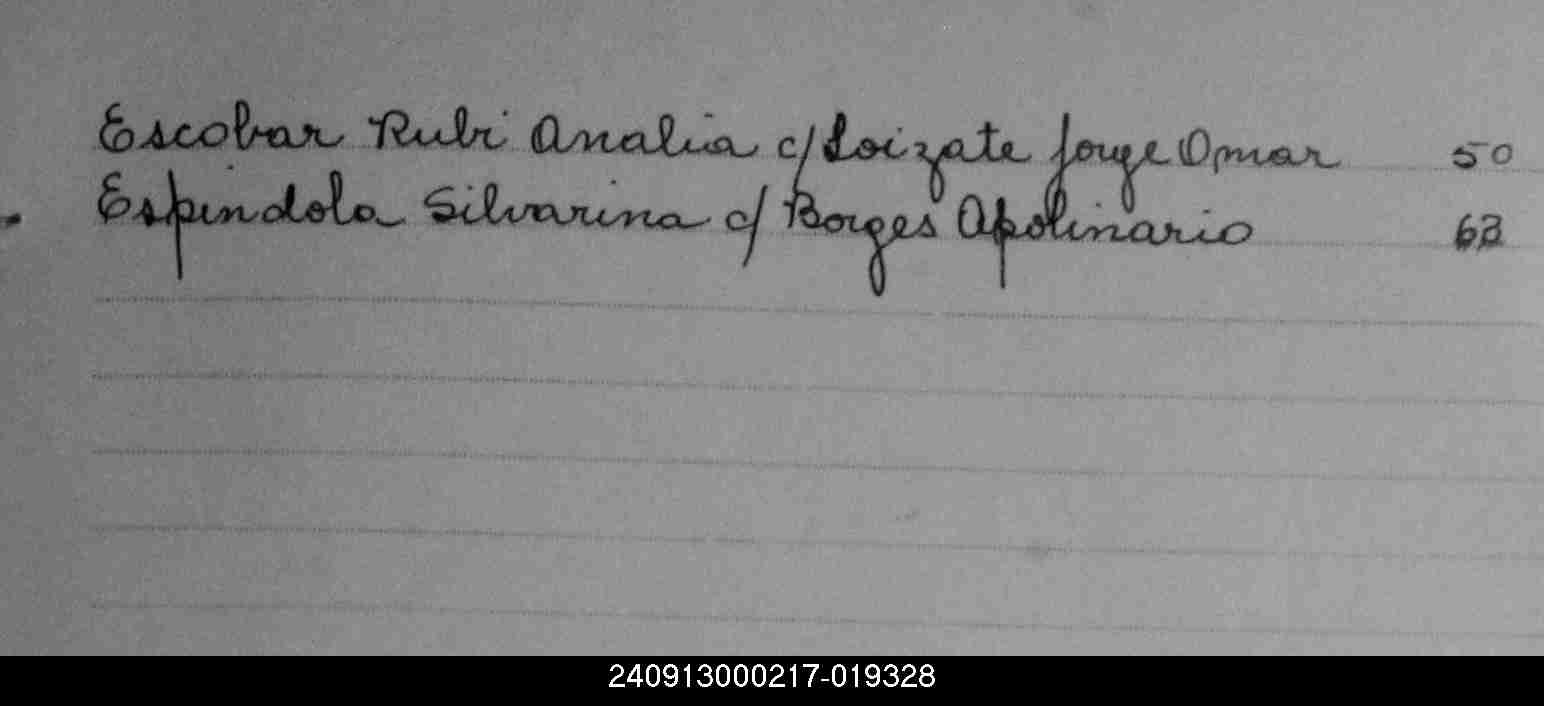 Escobar Rubi Analia c/ Loizate Jorge Omar 50
Espindola Silvarina c/ Borges Apolinario 63
240913000217-019328